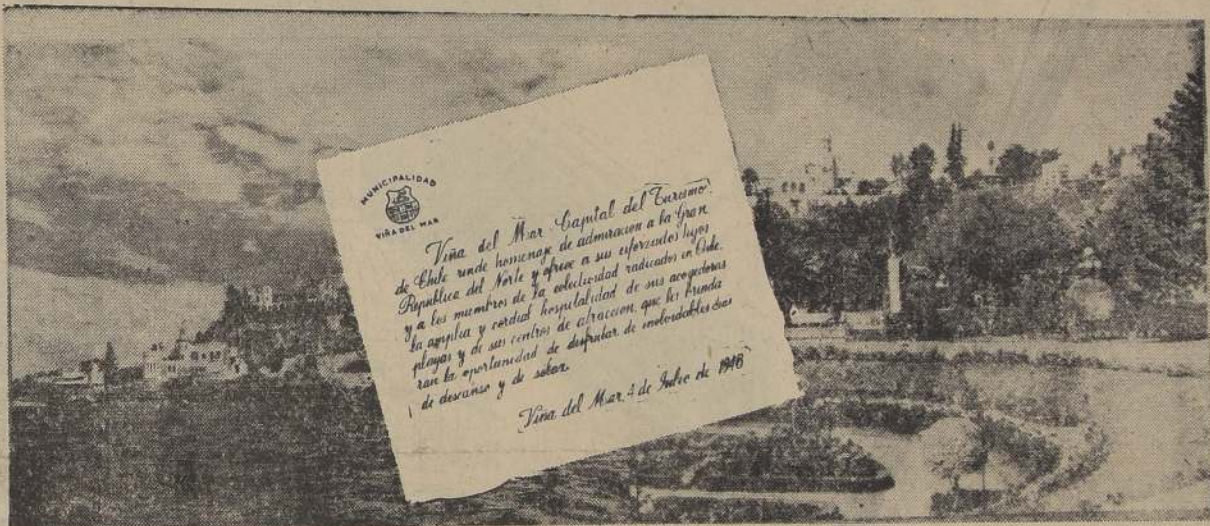 MUNICIPALIDAD
VIÑA DEL MAR
Viña del Mar Capital del Turismo
de Chile rinde homenaje de admiracion a la Gran
Republica del Norte y ofrece a sus esforzados hijos
y a los miembros de la colectividad radicados en Chile,
la amplia y cordial hospitalidad de sus acogedoras
playas y de sus centros de atraccion, que les brinda
ran la oportunidad de disfrutar de inolvidables dias
de descanso y de solaz.
Viña del Mar, 4 de Julio de 1946